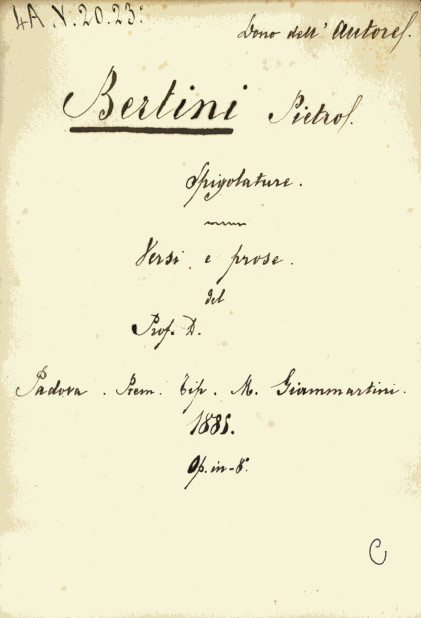 4A.V.20.23:
Dono dell' Autore.
Bertini Pietro.
Spigolature.
Versi e prose.
del
Prof. D.
Padova. Prem. Tip. M. Giammartini.
1885.
Op. in-8°
C